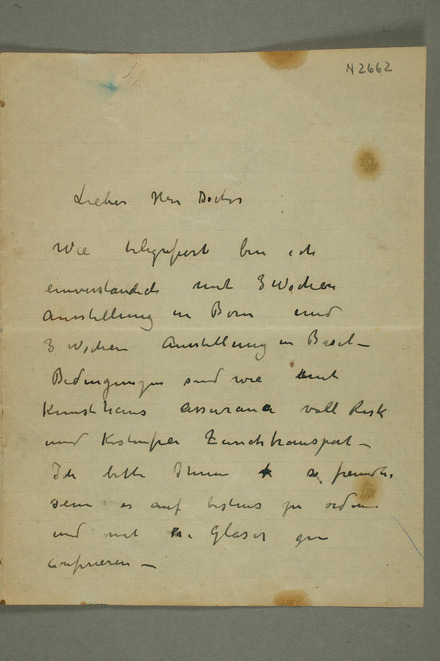 N 2662
Lieber Herr Doctor
Wie telegrafiert bin ich
einverstanden mit 3 Wochen
Ausstellung in Bern und
3 Wochen Ausstellung in Basel –
Bedingungen sind wie mit
Kunsthaus assurance voll Risk
und Kostenfrei Zurücktransport –
Ich bitte Ihnen so freundl.
sein es auf bestens zu ordnen
und mit Glaser zu
conferieren –